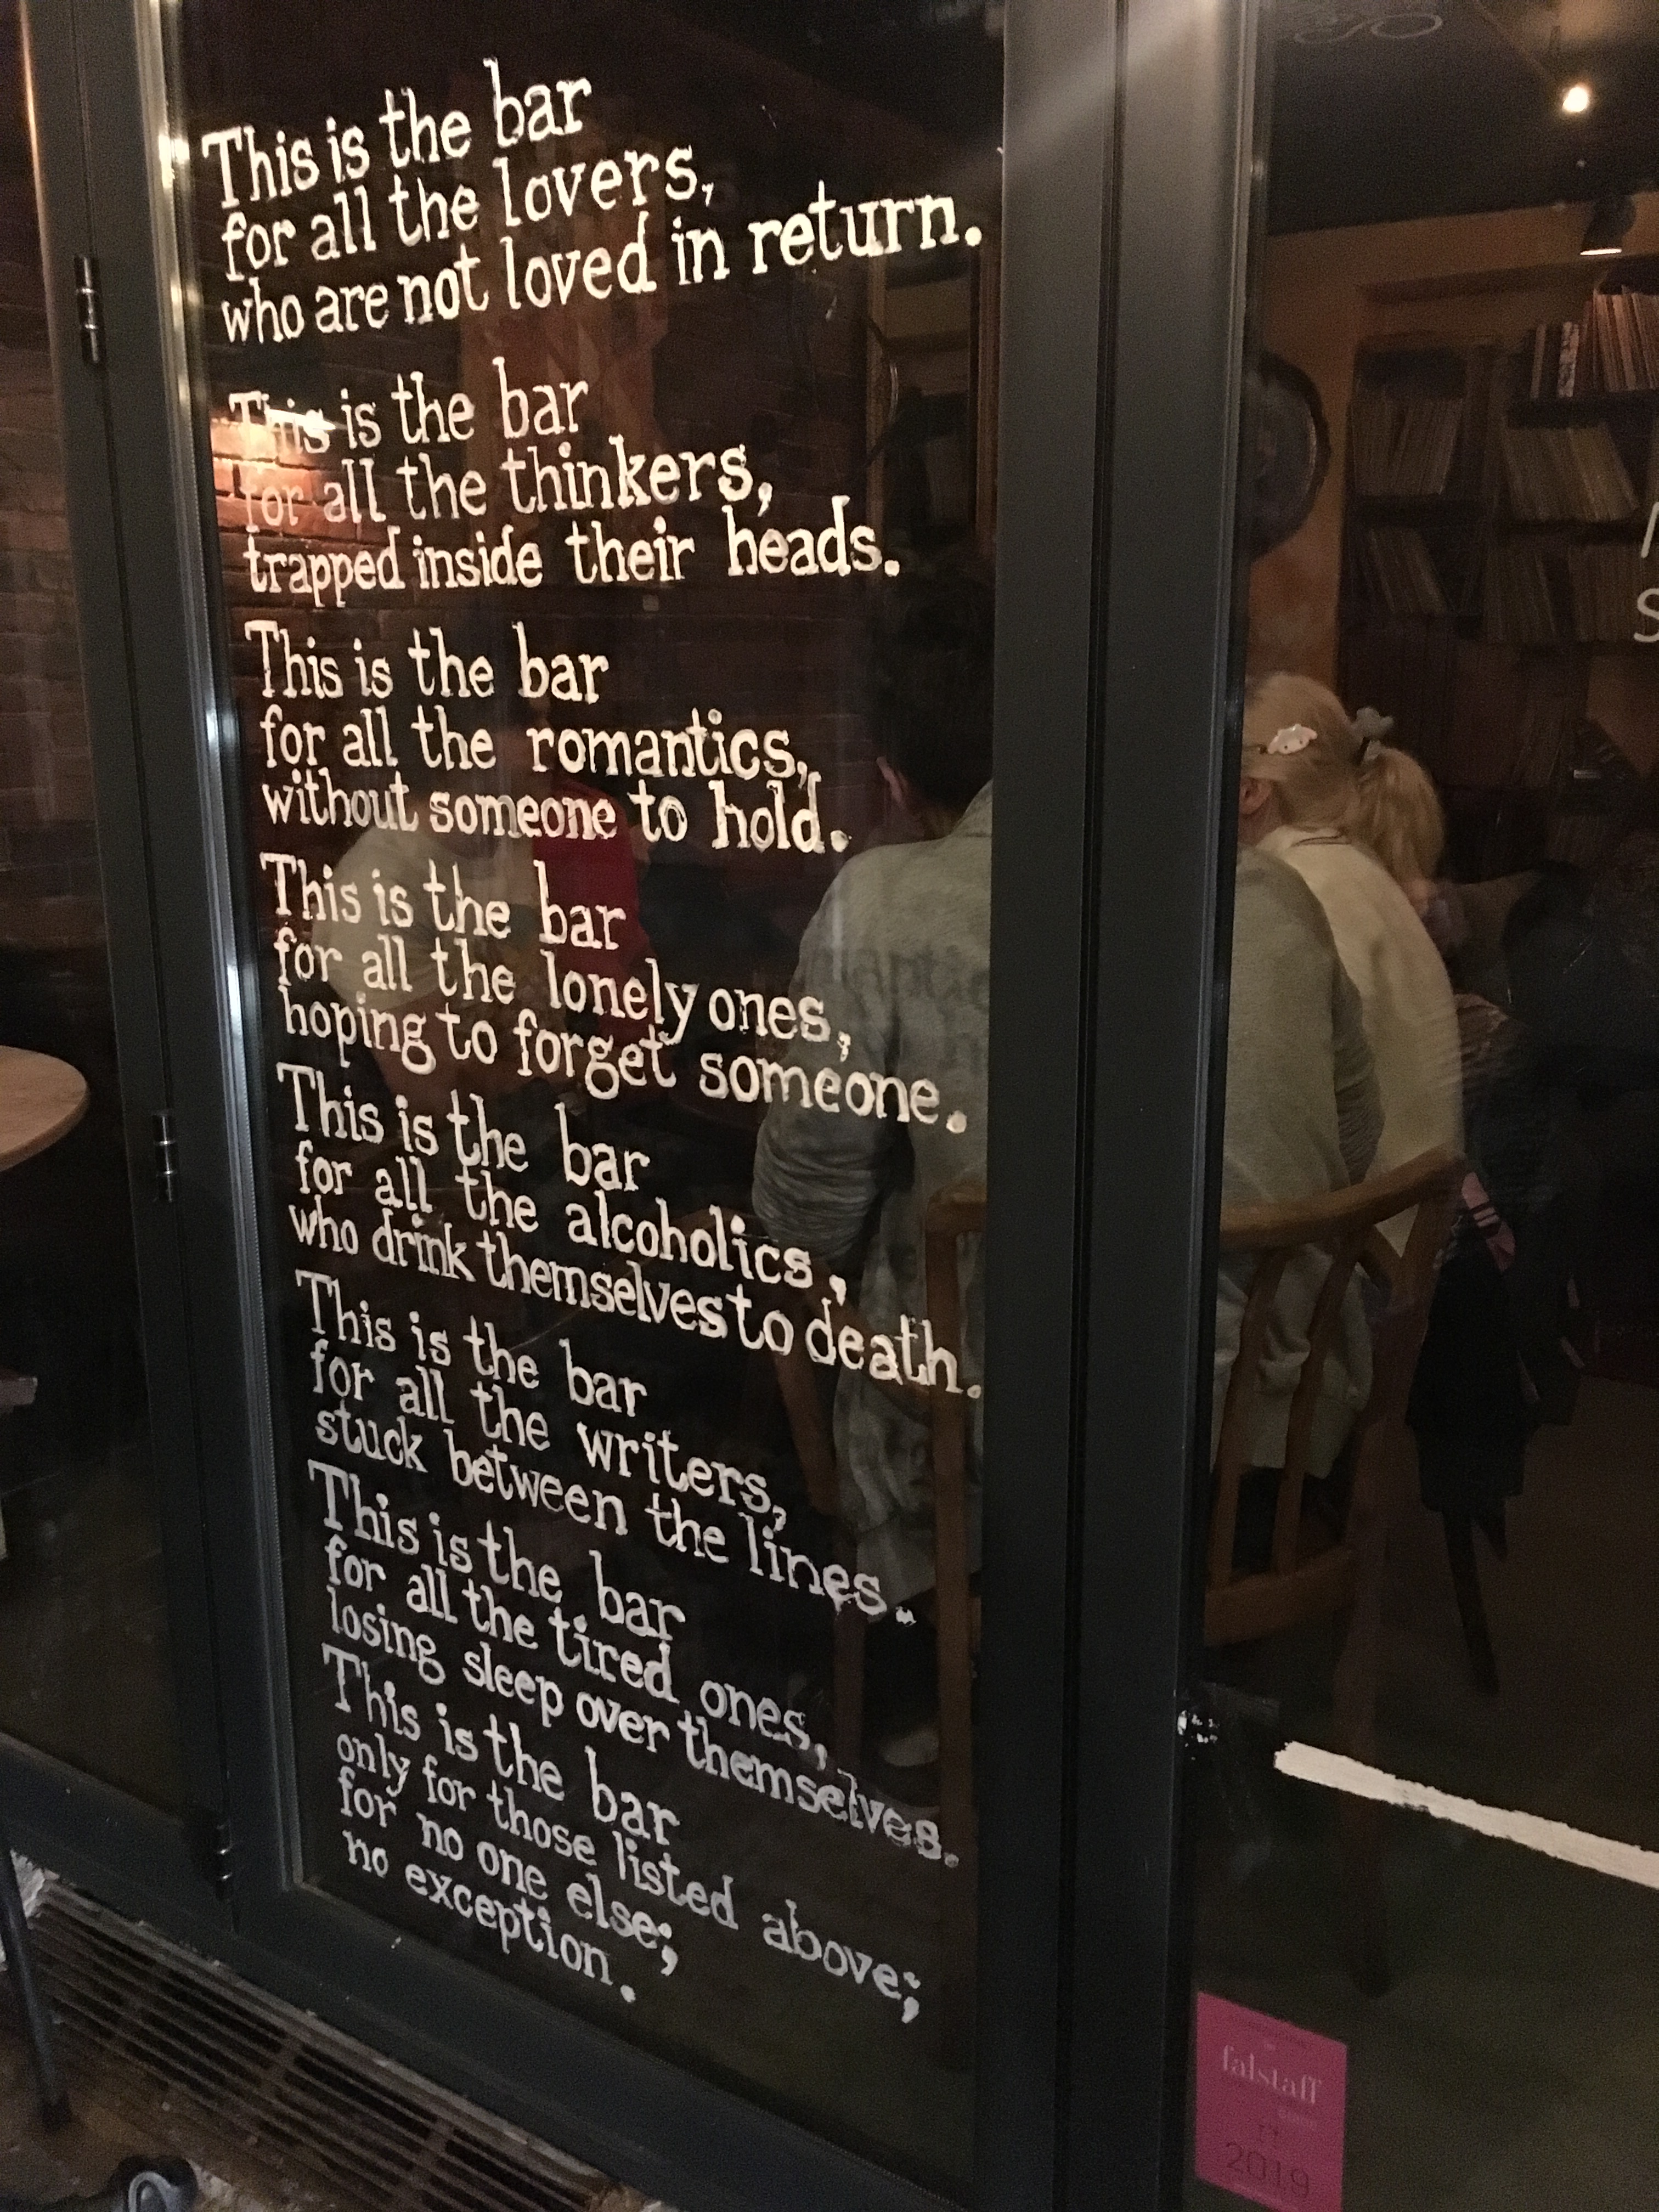 This is the bar
for all the lovers,
who are not loved in return.
This is the bar
for all the thinkers,
trapped inside their heads.
This is the bar
for all the romantics,
without someone to hold.
This is the bar
for all the lonely ones,
hoping to forget someone.
This is the bar
for all the alcoholics,
who drink themselves to death.
This is the bar
for all the writers,
stuck between the lines.
This is the bar
for all the tired ones,
losing sleep over themselves.
This is the bar
only for those listed above;
for no one else;
no exception.
falstaff
2019